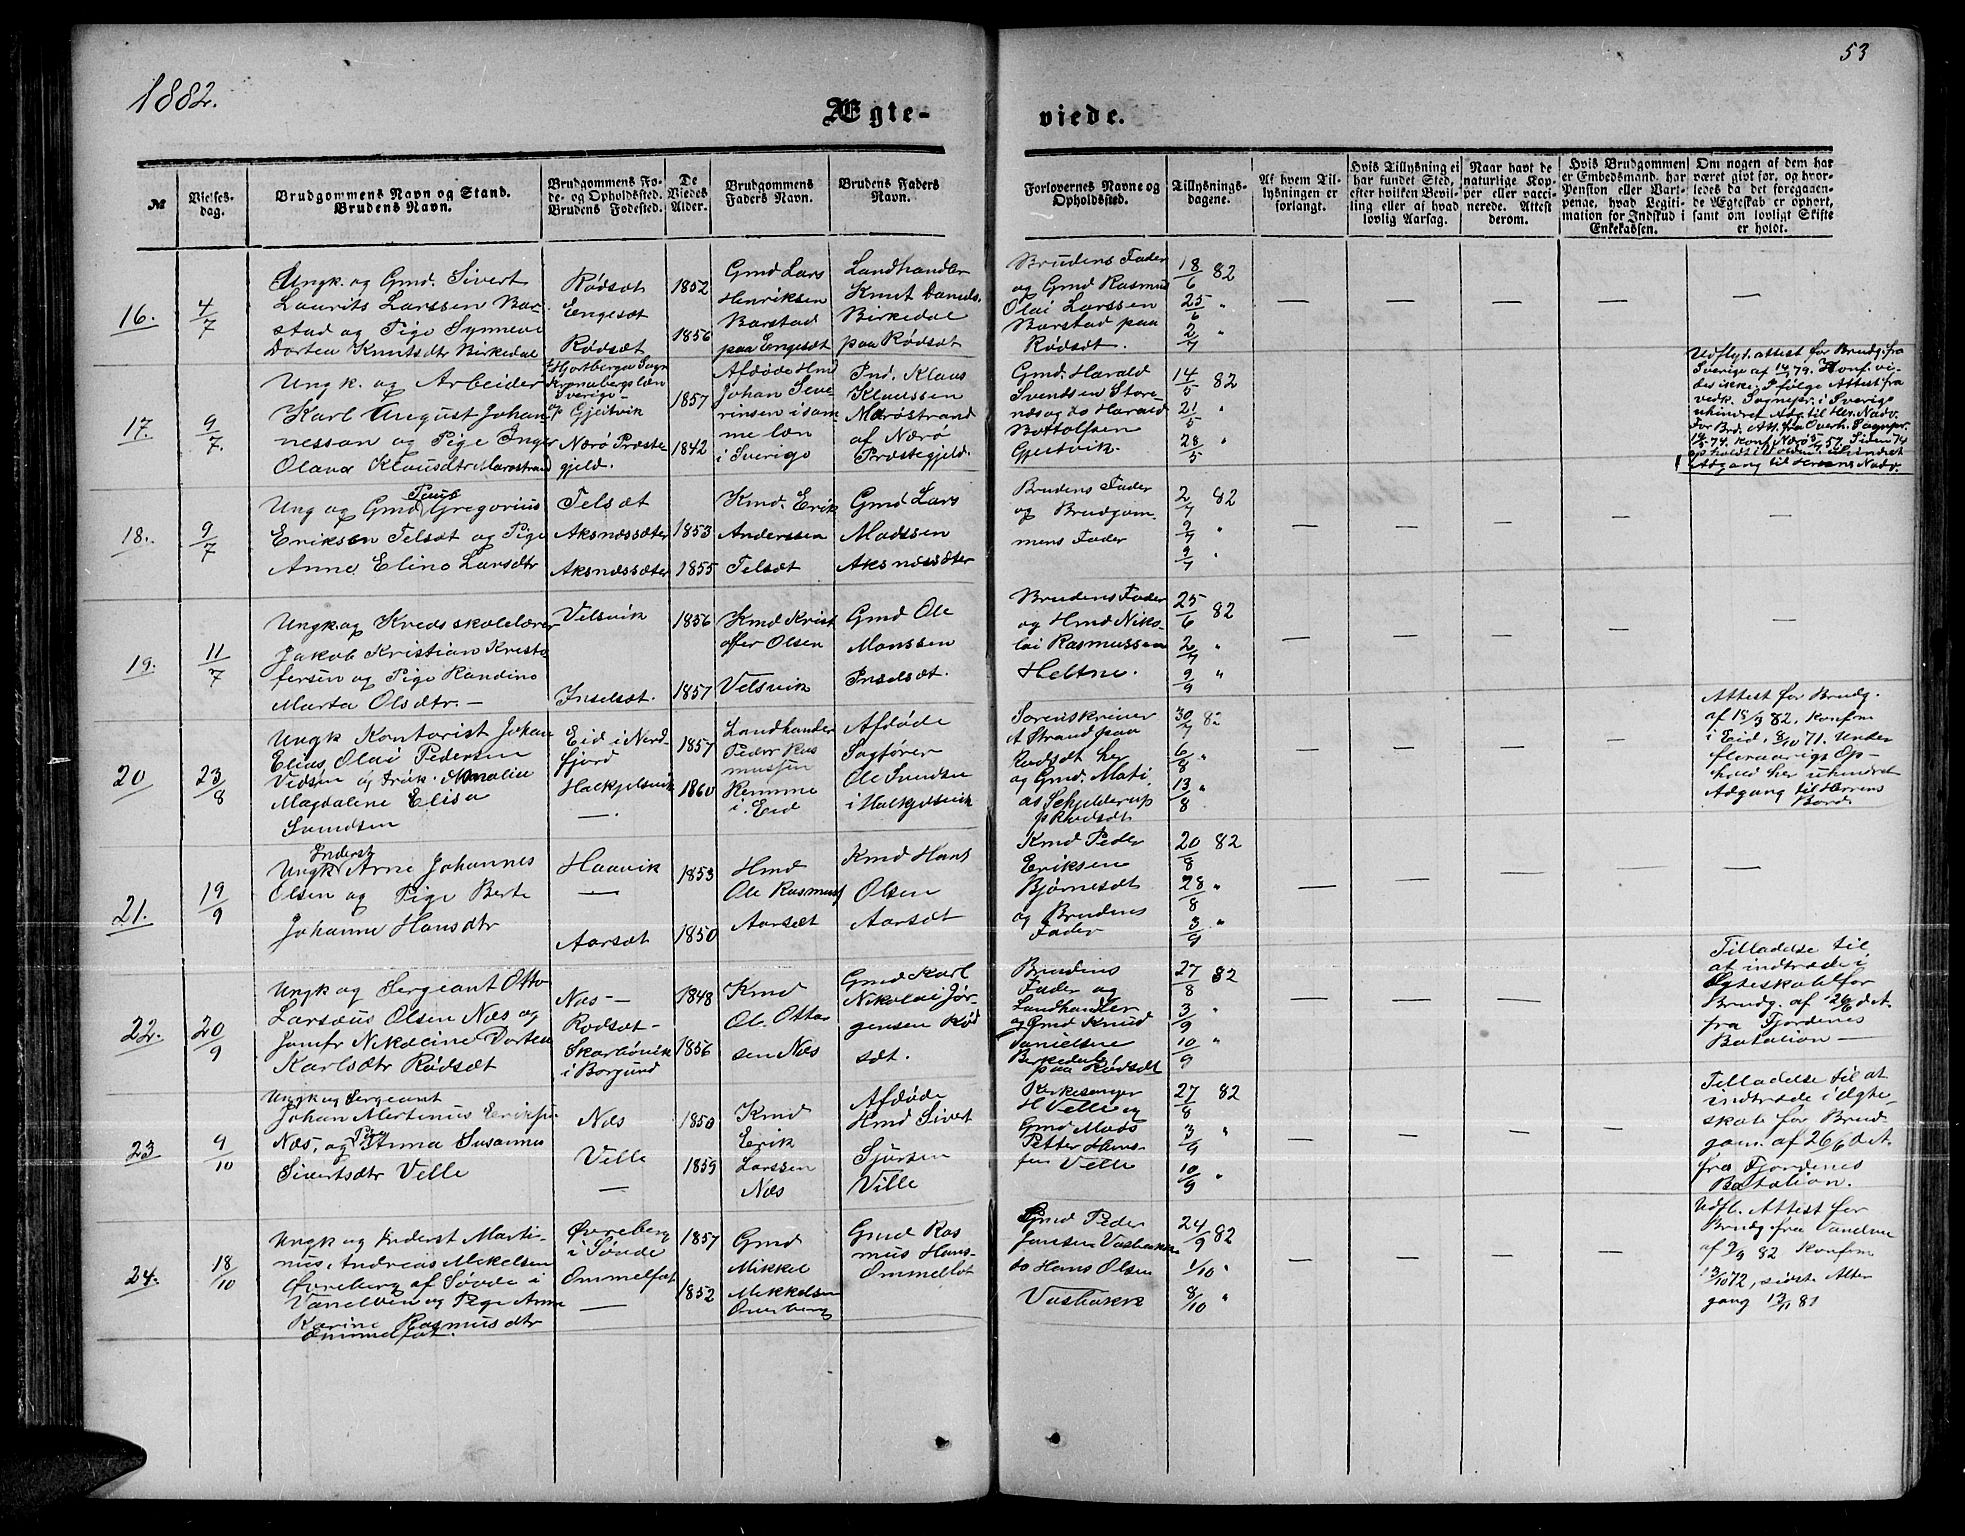 1882.
53
Ægte-
viede.
№
Vielses-
dag.
Brudgommens Navn og Stand.
Brudens Navn.
Brudgommens Fø-
de- og Opholdssted.
Brudens Fødested.
De
Viedes
Alder.
Brudgommens
Faders Navn.
Brudens Faders
Navn.
Forlovernes Navne og
Opholdssted.
Tillysnings-
dagene.
Af hvem Til-
lysningen er
forlangt.
Hvis Tillysning ei
har fundet Sted,
efter hvilken Bevil-
ling eller af hvad
lovlig Aarsag.
Naar havt de
naturlige Kop-
per eller vacci-
nerede. Attest
derom.
Hvis Brudgommen
er Embedsmand, har
Pension eller Vart-
penge, hvad Legiti-
mation for Indskud i
Enkekassen.
Om nogen af dem har
været givt før, og hvor-
ledes da det foregaaen-
de Ægteskab er ophørt,
samt om lovligt Skifte
er holdt.
16.
4/7
Ungk. og Gmd. Sivert
Laurits Larssen Bar-
stad og Pige Synneve
Dortea Knutsdtr Birkedal
Rødsæt
Engesæt
Rødsæt
1852
1856
Gmd Lars
Henriksen
Barstad
paa Engesæt
Landhandler
Knut Daniels.
Birkedal
paa Rødsæt
Brudens Fader
og Gmd Rasmus
Olai Larssen
Barstad paa
Rødsæt.
18/6 82
25/6 "
2/7 "
17.
9/7.
Ungk. og Arbeider
Karl August Johan-
nesson og Pige Inger
Olana Klausdtr Marøstrand
Hjortberga Sogn
Kronobergs læn
Sverige
op Gjeitvik
Nærø Præste-
gjeld.
1857
1842
Afdøde Hmd
Johan Seve-
rinsen i sam-
me læn
i Sverige
Ind. Klaus
Klaussen
Marøstrand
af Nærø
Præstegjeld.
Gmd. Harald
Svendsen Store-
næs og do Harald
Bottolfsen
Gjeitvik.
14/5 82
21/5 "
28/5 "
Udflyt. attest for Brudg. fra
Sverige af 14/79. Konf. vi-
des ikke. Ifølge Attest fra
vedk. Sognepr. i Sverige
uhindret Adg. til Her. Nadv.
For Brd. Att. fra Overh. Sognepr.
14/5 74. konf. Nærø 57. Siden 74
opholdt i Volden. Uhindret
Adgang til Herrens Nadv.
18.
9/7
Ung og Gmd Paus Gregorius
Eriksen Telsæt og Pige
Anne Eline Larsdtr
Telsæt
Aksnæssæter
Aksnæssæter
1853
1855
Kmd. Erik
Anderssen
Telsæt
Gmd Lars
Madssen
Aksnæssæter
Brudens Fader
og Brudgom-
mens Fader
2/7 82
2/7 "
9/7 "
19.
11/7
Ungk og Kredsskolelærer
Jakob Kristian Kristo
fersen og Pige Randine
Marta Olsdtr. —
Velsvik
Inselsæt.
1856
1857
Kmd Krist
offer Olsen
Velsvik
Gmd Ole
Monssen
Inselsæt.
Brudens Fader
og Hmd Niko-
lai Rasmussen
Heltne.
25/6 82
2/7 "
9/9 "
20
23/8
Ungk Kontorist Johan
Elias Olai Pedersen
og Frøk. Amalie
Magdalene Elisa
Svendsen
Eid i Nord-
fjord
Halkjelsvik
—.
1857
1860
Landhander
Peder Ras
mussen
Remme
i Eid
Afdøde
Sagfører
Ole Svendsen
i Halkjelsvik
Sorenskriver
A Strand paa
Rødsæt her
og Gmd. Mati
as Schjelderup
p Rødsæt
30/7 82
6/8 "
13/8 "
Attest for Brudg.
af 15/3 82. Konfm
i Eid, 8/10 71. Under
fleraarigt Op-
hold her uhindret
Adgang til Herrens
Bord.
21.
19/9
Ungk Inderst Arne Johannes
Olsen og Pige Berte
Johanne Hansdtr
Haavik
—
Aarsæt
1853
1850
Hmd
Ole Rasmuss
Aarsæt
Kmd Hans
Olsen
Aarsæt
Kmd Peder
Eriksen
Bjørnesæt
og Brudens
Fader
20/8 82
28/8 "
3/9 "
22.
20/9
Ungk og Sergeant Otto
Larsæus Olsen Næs og
Jomfr Nikoline Dortea
Karlsdtr Rødsæt
Næs —
Rødsæt —
Skarbøvik
i Borgund
1848
1856
Kmd
Ol. Otto-
sen Næs
Gmd Karl
Nikolai Jør-
gensen Rød
sæt.
Brudens
Fader og
Landhandler
og Gmd Knud
Danielsen
Birkedal
paa Rødsæt
27/8 82
3/9 "
10/9 "
Tilladelse til
at indtræde i
Ægteskab for
Brudg. af 26/6 det
fra Fjordenes
Batalion —
23
9/10
Ungk og Sergeant
Johan Martinus Eriksen
Næs, og Pige Anna Susanna
Sivertsdtr Velle
Næs
Velle
—
1850
1859
Kmd
Erik
Larssen
Næs
Afdøde
Kmd Sivert
Sjursen
Velle
Kirkesanger
H Velle og
Gmd Mads
Petter Hans-
sen Velle
27/8 82
3/9 "
10/9 "
Tilladelse til at
indtræde i Ægte-
skab for Brud-
gom. af 26/6 det.
fra Fjordenes
Batalion.
24.
18/10
Ungk og Inderst Marti-
nus Andreas Mikelsen
Øvreberg af Søvde i
Vanelven og Pige Anne
Karine Rasmusdtr
Ommelfot.
Øvreberg
i Søvde
Ommelfot
—
1857
1852
Gmd
Mikkel
Mikkelsen
Øvreberg
Gmd Ras
mus Hans-
Ommelfot
Gmd Peder
Jansen Vasbakk
do Hans Olsen
Vasbakk
24/9 82
1/10 "
8/10 "
Udfl. Attest for
Brudg fra Vanelven
af 9/9 82 Konfirm
13/10 72, sidste Alter
gang 13/11 81